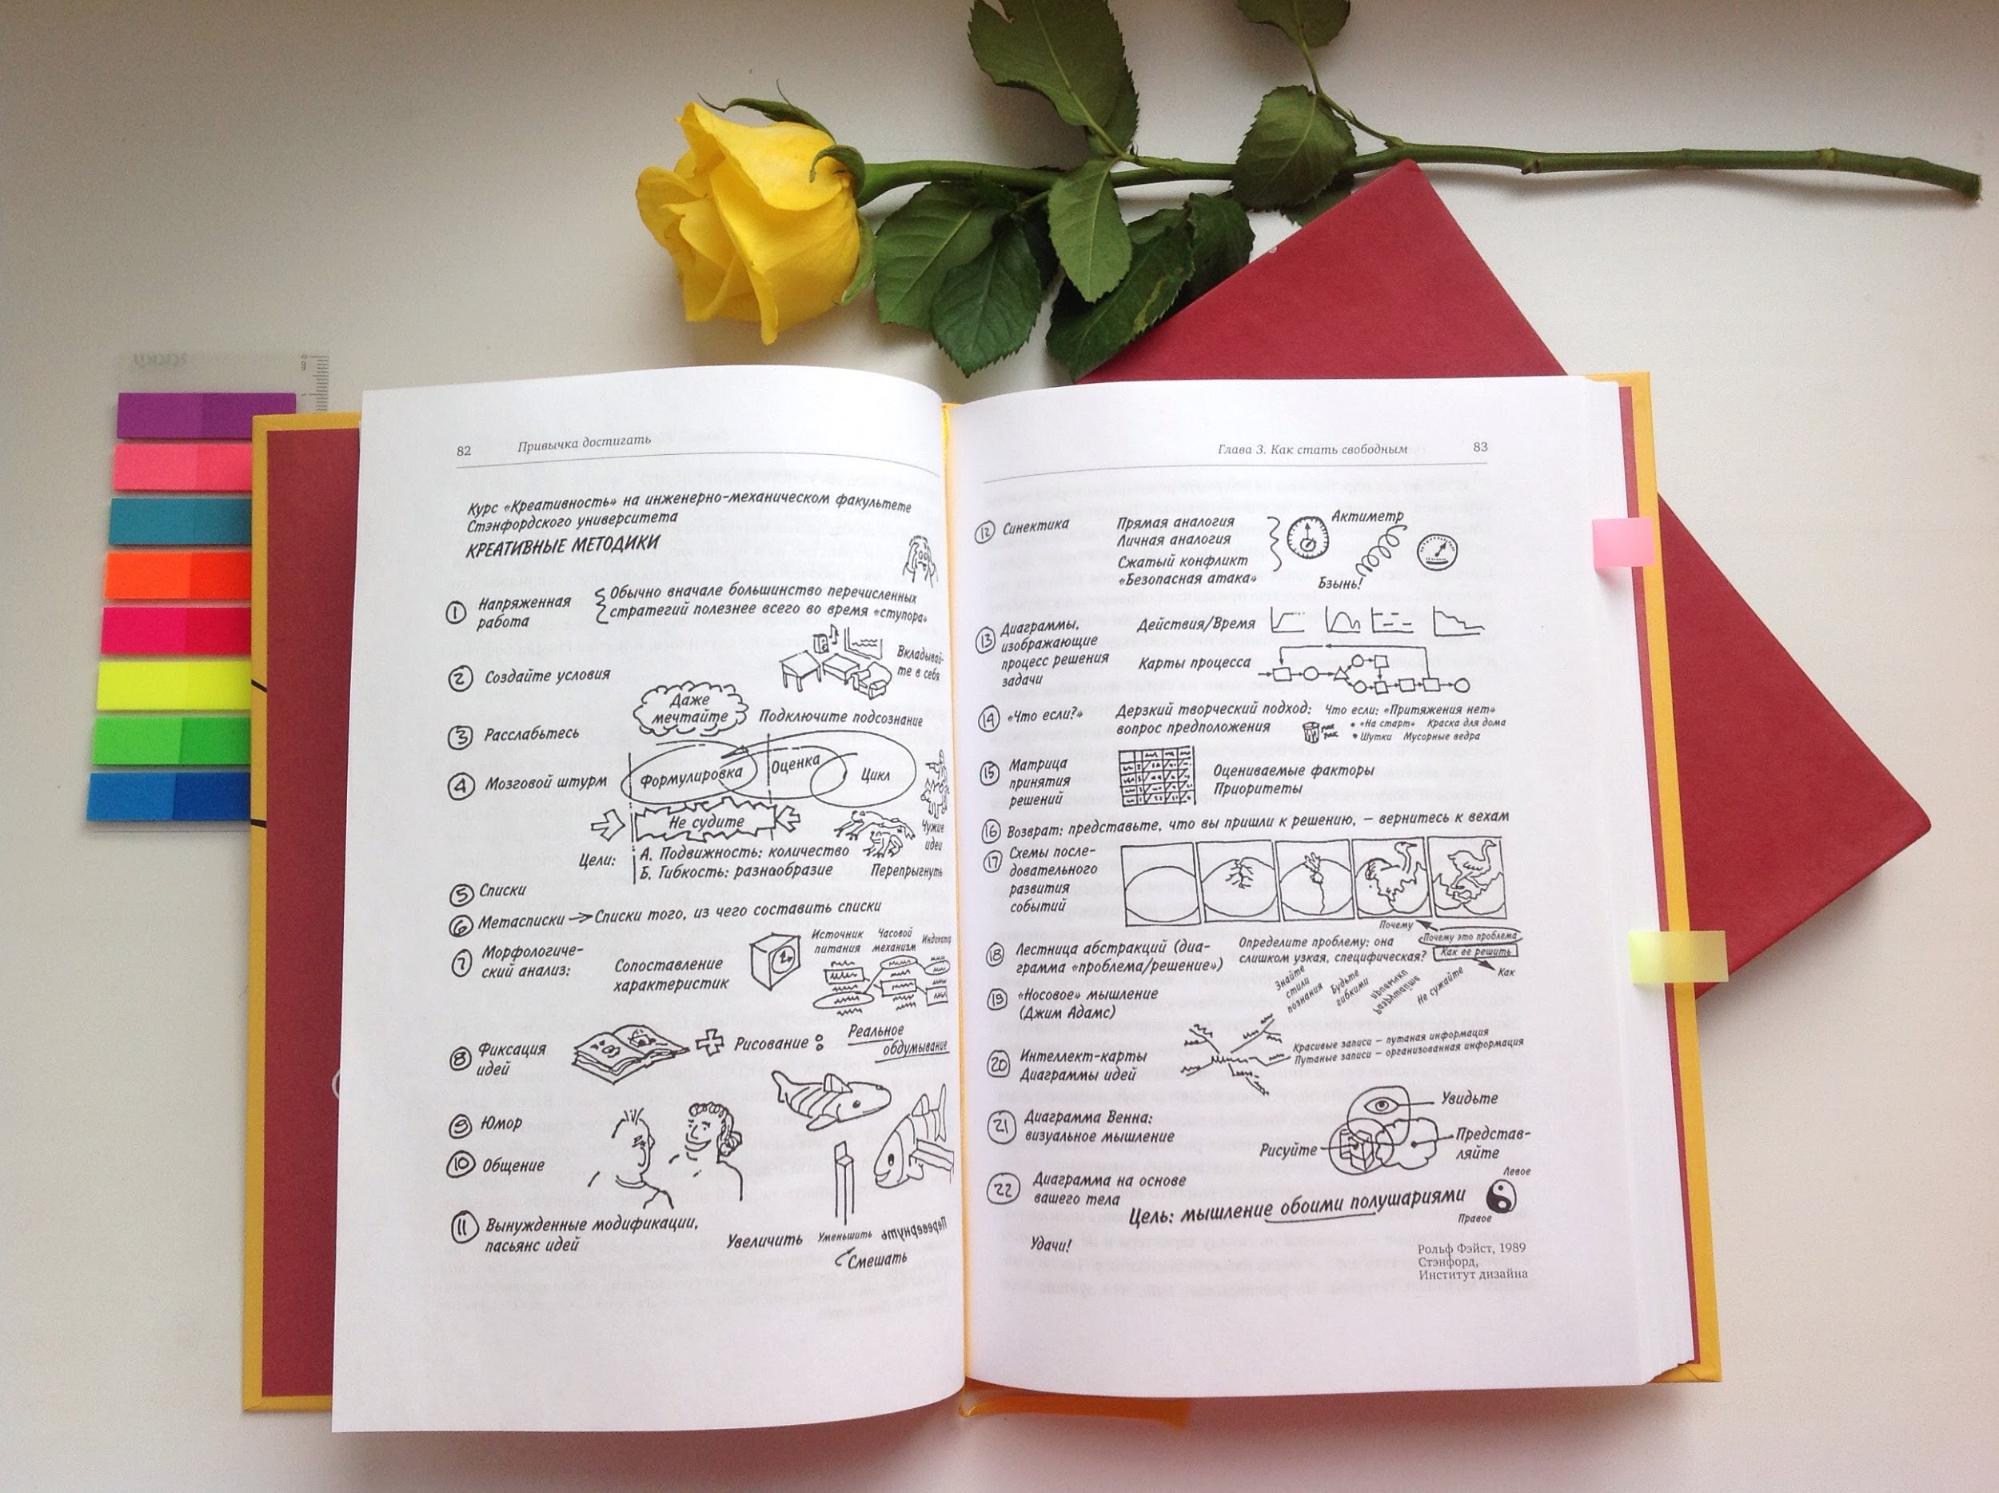 82 Привычка достигать
Курс «Креативность» на инженерно-механическом факультете
Стэнфордского университета
КРЕАТИВНЫЕ МЕТОДИКИ
1 Напряженная
работа
Обычно вначале большинство перечисленных
стратегий полезнее всего во время «ступора»
2 Создайте условия
Вкладывай-
те в себя
3 Расслабьтесь
Даже
мечтайте
Подключите подсознание
4 Мозговой штурм
Формулировка
Оценка
Цикл
Не судите
Чужие
идеи
Цели:
А. Подвижность: количество
Б. Гибкость: разнообразие
Перепрыгнуть
5 Списки
6 Метасписки → Списки того, из чего составить списки
7 Морфологиче-
ский анализ:
Сопоставление
характеристик
Источник
питания
Часовой
механизм
8 Фиксация
идей
Рисование :
Реальное
обдумывание
9 Юмор
10 Общение
11 Вынужденные модификации,
пасьянс идей
Увеличить
Уменьшить
Перевернуть
Смешать
Глава 3. Как стать свободным 83
12 Синектика
Прямая аналогия
Личная аналогия
Сжатый конфликт
«Безопасная атака»
Актиметр
Бзынь!
13 Диаграммы,
изображающие
процесс решения
задачи
Действия/Время
Карты процесса
14 «Что если?»
Дерзкий творческий подход:
вопрос предположения
Что если: «Притяжения нет»
• «На старт» Краска для дома
• Шутки Мусорные ведра
15 Матрица
принятия
решений
Оцениваемые факторы
Приоритеты
16 Возврат: представьте, что вы пришли к решению, — вернитесь к вехам
17 Схемы после-
довательного
развития
событий
18 Лестница абстракций (диа-
грамма «проблема/решение»)
Определите проблему: она
слишком узкая, специфическая?
Почему
Почему это проблема
Как ее решить
Как
19 «Носовое» мышление
(Джим Адамс)
Знайте
стили
познания
Будьте
гибкими
Не сужайте
20 Интеллект-карты
Диаграммы идей
Красивые записи — путаная информация
Путаные записи — организованная информация
21 Диаграмма Венна:
визуальное мышление
Увидьте
Рисуйте
Представ-
ляйте
22 Диаграмма на основе
вашего тела
Цель: мышление обоими полушариями
Левое
Правое
Удачи!
Рольф Фэйст, 1989
Стэнфорд,
Институт дизайна